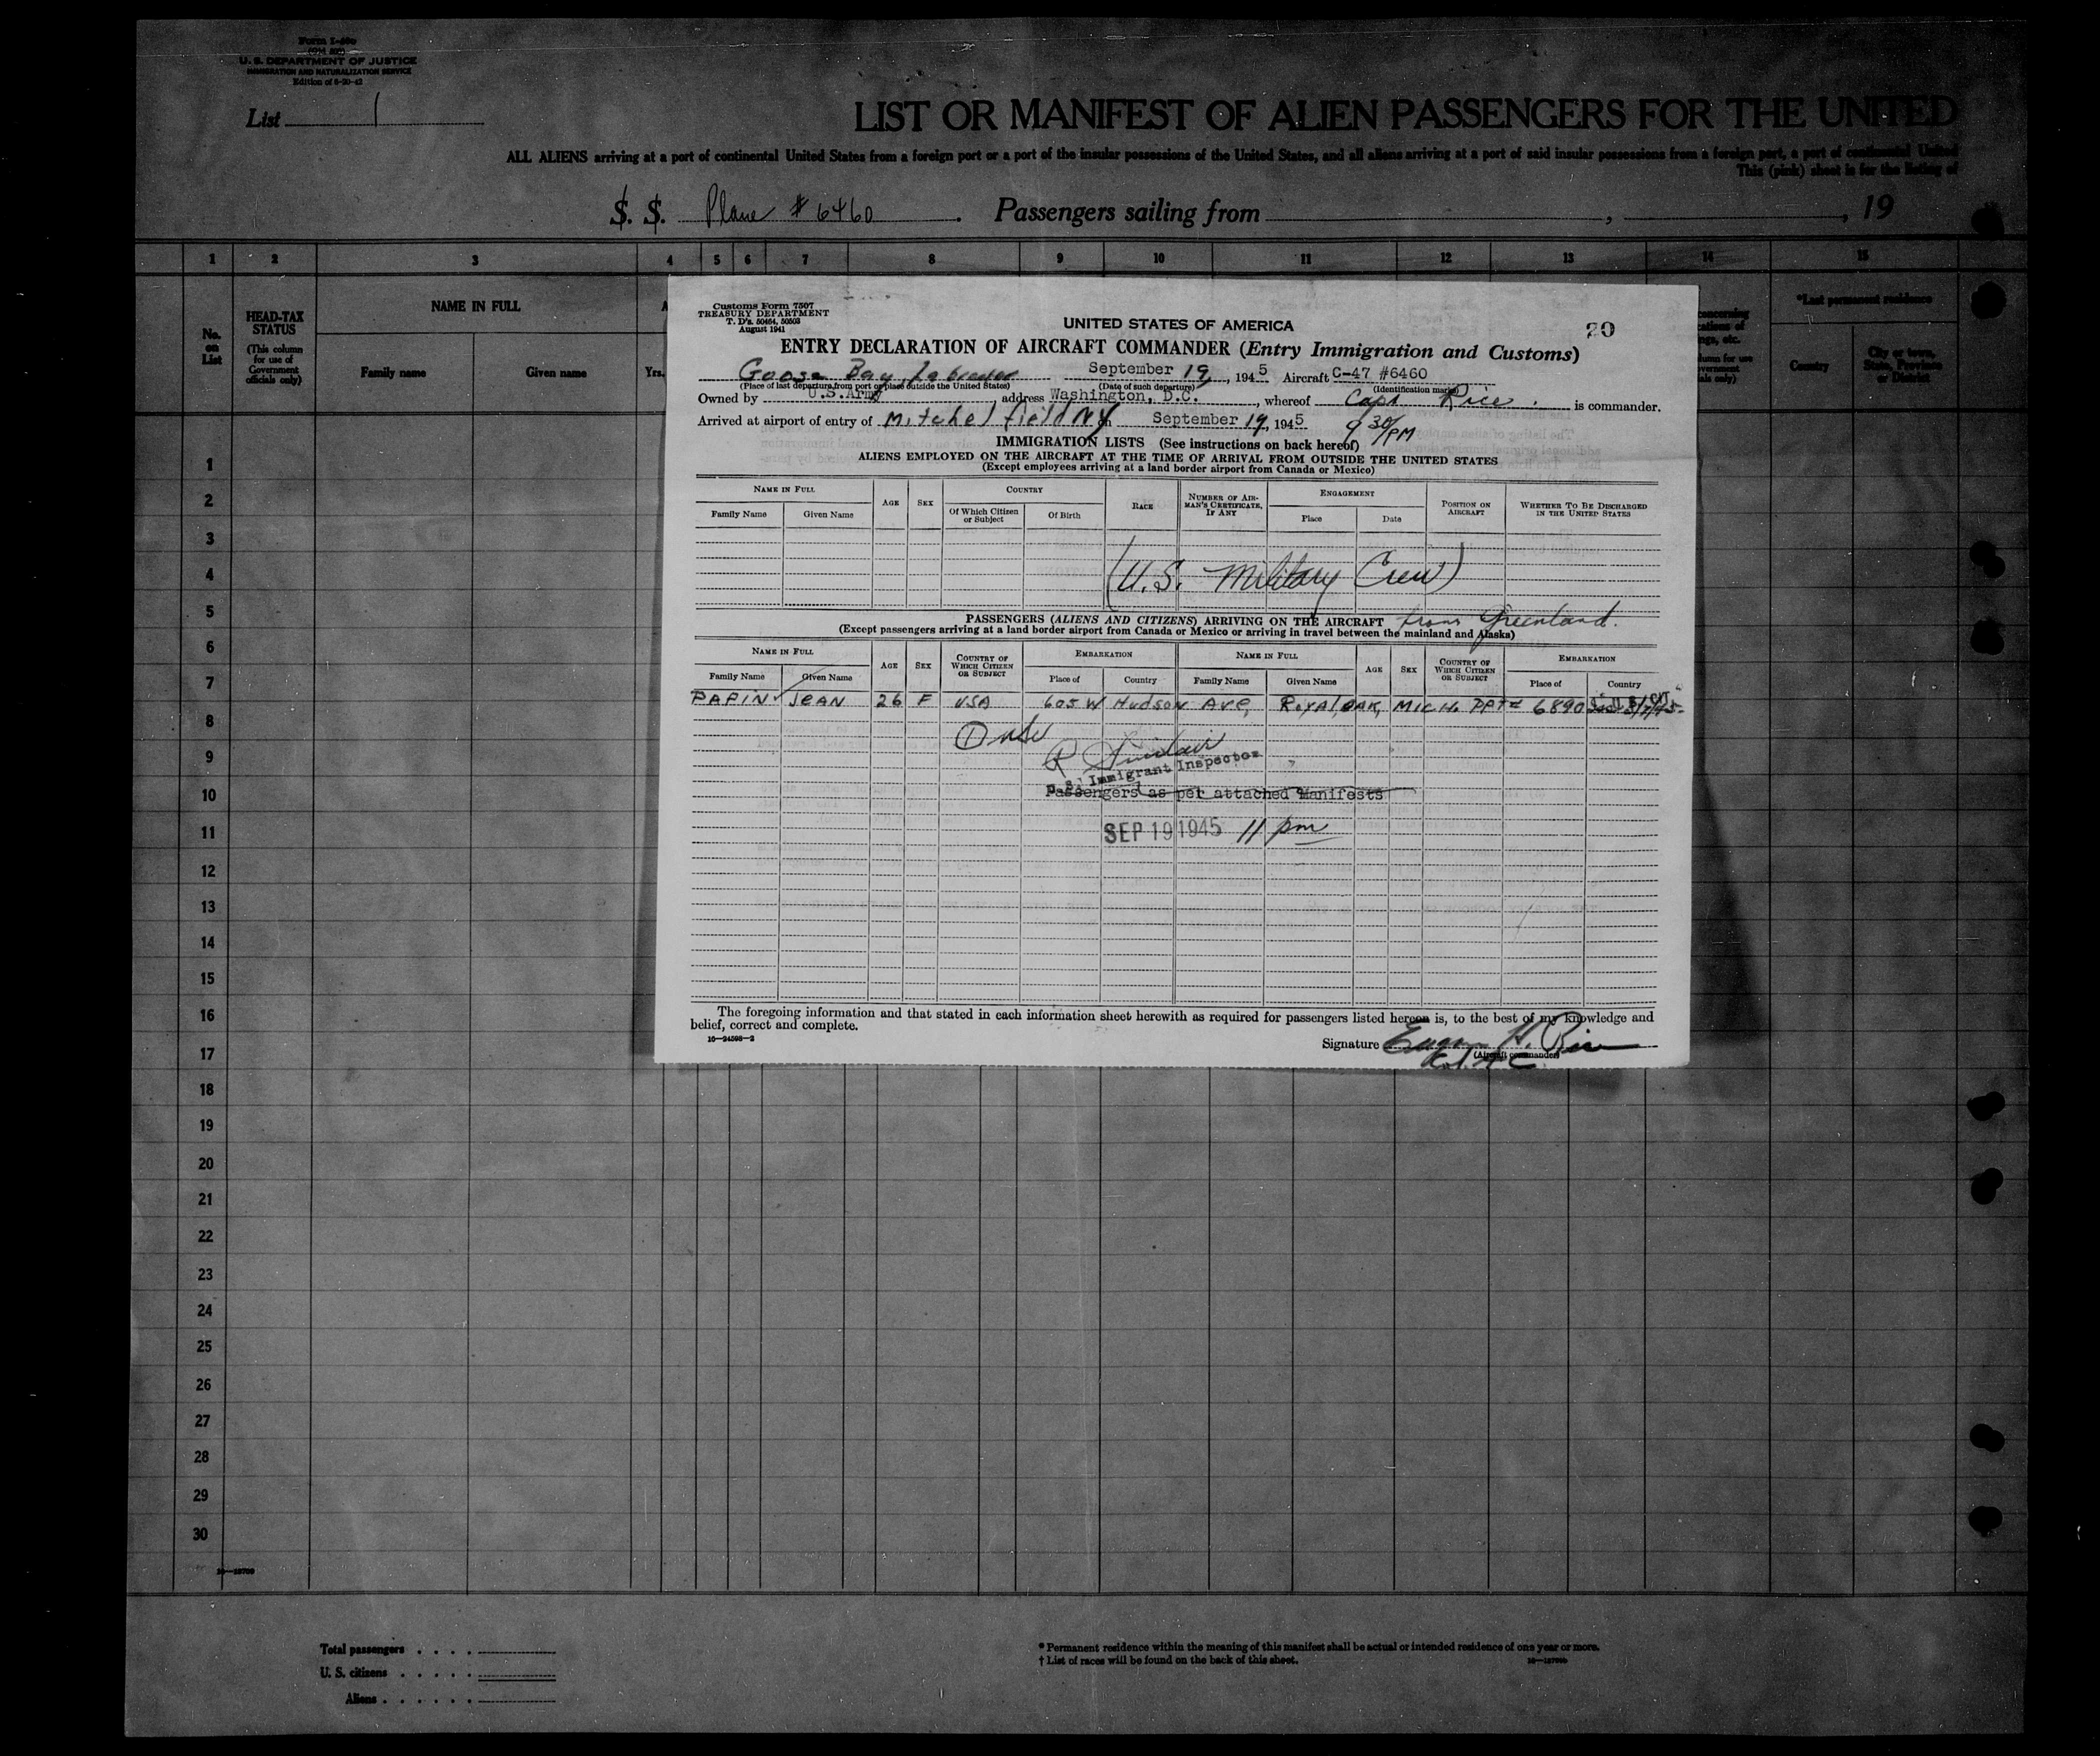 Form I-
U. S. DEPARTMENT OF JUSTICE
IMMIGRATION AND NATURALIZATION SERVICE
Edition of 6-20-42
List 1
LIST OR MANIFEST OF ALIEN PASSENGERS FOR THE UNITED
ALL ALIENS arriving at a port of continental United States from a foreign port or a port of the insular possessions of the United States, and all aliens arriving at a port of said insular possessions from a foreign port, a port of continental United
This (pink) sheet is for the listing of
S. S. Plane #6460. Passengers sailing from , , 19
1 2 3 4 5 6 7 8 9 10 11 12 13 14 15
No. on List
HEAD-TAX STATUS
(This column for use of Government officials only)
NAME IN FULL
Family name Given name
Yrs.
*Last permanent residence
Country City or town, State, Province or District
Customs Form 7507
TREASURY DEPARTMENT
T. D's. 50464, 50503
August 1941
UNITED STATES OF AMERICA
20
ENTRY DECLARATION OF AIRCRAFT COMMANDER (Entry Immigration and Customs)
Goose Bay, Labrador September 19, 1945 Aircraft C-47 #6460
(Place of last departure from port or place outside the United States) (Date of such departure) (Identification marks)
Owned by U.S. Army, address Washington, D.C., whereof Capt Rice. is commander.
Arrived at airport of entry of Mitchel field NY September 19, 1945 9 30/PM
IMMIGRATION LISTS (See instructions on back hereof)
ALIENS EMPLOYED ON THE AIRCRAFT AT THE TIME OF ARRIVAL FROM OUTSIDE THE UNITED STATES
(Except employees arriving at a land border airport from Canada or Mexico)
NAME IN FULL AGE SEX COUNTRY RACE NUMBER OF AIRMAN'S CERTIFICATE, IF ANY ENGAGEMENT POSITION ON AIRCRAFT WHETHER TO BE DISCHARGED IN THE UNITED STATES
Family Name Given Name Of Which Citizen or Subject Of Birth Place Date
(U.S. Military Crew)
PASSENGERS (ALIENS AND CITIZENS) ARRIVING ON THE AIRCRAFT from Greenland.
(Except passengers arriving at a land border airport from Canada or Mexico or arriving in travel between the mainland and Alaska)
NAME IN FULL AGE SEX COUNTRY OF WHICH CITIZEN OR SUBJECT EMBARKATION NAME IN FULL AGE SEX COUNTRY OF WHICH CITIZEN OR SUBJECT EMBARKATION
Family Name Given Name Place of Country Family Name Given Name Place of Country
PAPIN JEAN 26 F USA 605 W Hudson Ave, Royal OAK, MICH. PPT# 6890
R Sinclair
U. S. Immigrant Inspector
Passengers as per attached Manifests
SEP 19 1945 11 pm
The foregoing information and that stated in each information sheet herewith as required for passengers listed hereon is, to the best of my knowledge and
belief, correct and complete.
16—24598-2
Signature Eugene H. Rice
(Aircraft commander)
1
2
3
4
5
6
7
8
9
10
11
12
13
14
15
16
17
18
19
20
21
22
23
24
25
26
27
28
29
30
Total passengers . . . .
U. S. citizens . . . . .
Aliens . . . . . .
* Permanent residence within the meaning of this manifest shall be actual or intended residence of one year or more.
† List of races will be found on the back of this sheet.